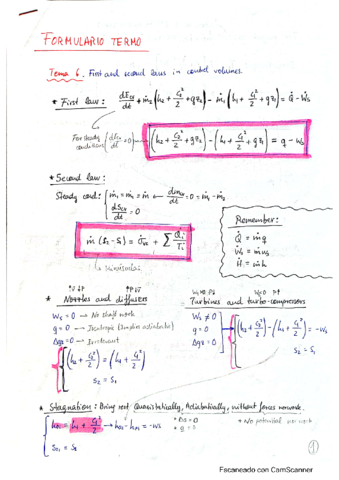 FORMULARIO TERMO
Tema 6. First and second laws in control volumes.
* First law: dE_cv/dt + ṁ₂(h₂ + C₂²/2 + gz₂) − ṁ₁(h₁ + C₁²/2 + gz₁) = Q̇ − Ẇs
For steady conditions (dE_cv/dt = 0) → (h₂ + C₂²/2 + gz₂) − (h₁ + C₁²/2 + gz₁) = q − ws
* Second law:
Steady cond: { ṁ₂ = ṁ₁ = ṁ ← dm_cv/dt = 0 = ṁ₁ − ṁ₂
dS_cv/dt = 0
ṁ(s₂ − s₁) = σ̇_vc + Σ Q̇i/Ti
Remember:
Q̇ = ṁq
Ẇs = ṁws
Ḣ = ṁh
* Nozzles and diffusers
Ws = 0 → No shaft work
q = 0 → Isentropic (implies adiabatic)
Δgz = 0 → Irrelevant
(h₂ + C₂²/2) = (h₁ + C₁²/2)
s₂ = s₁
Turbines and turbo-compressors
Ws ≠ 0
q = 0
Δgz = 0
(h₂ + C₂²/2) − (h₁ + C₁²/2) = −Ws
s₂ = s₁
* Stagnation: Bring rest Quasistatically, Adiabatically, without forces
* No potential
①
Escaneado con CamScanner